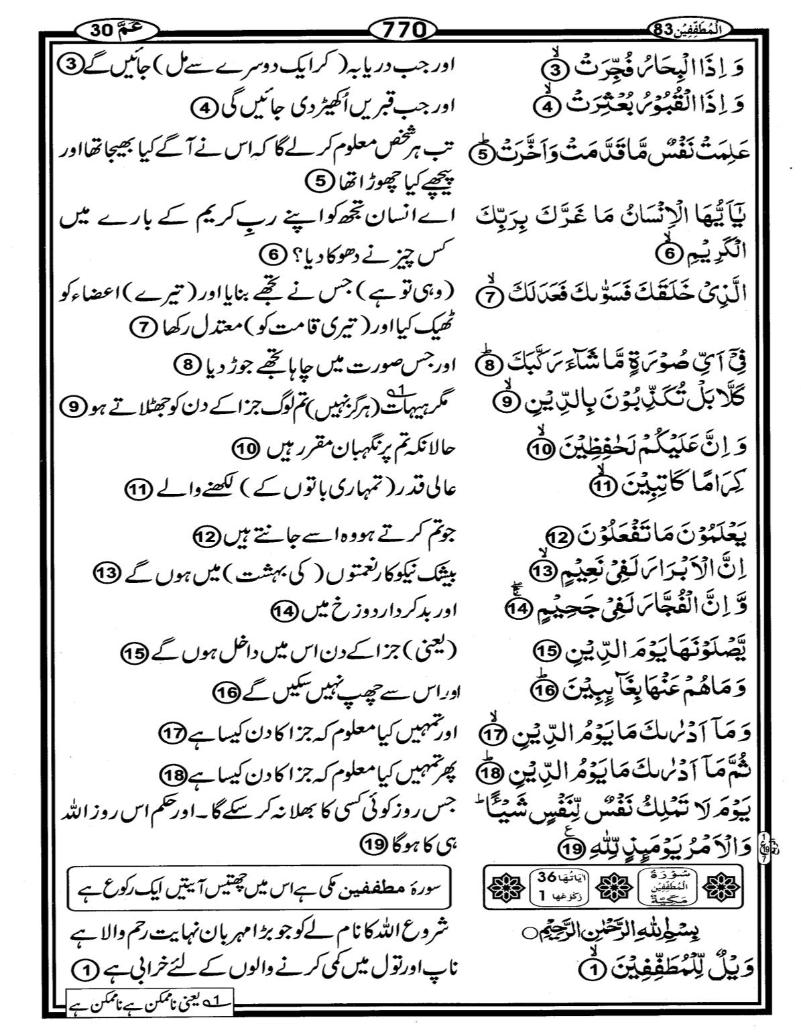 اَلْمُطَفِّفِيْن 83
770
عَمَّ 30
وَ اِذَا الْبِحَارُ فُجِّرَتْ ۙ 3
اور جب دریا بہ (کر ایک دوسرے سے مل) جائیں گے 3
وَ اِذَا الْقُبُوْرُ بُعْثِرَتْ ۙ 4
اور جب قبریں اُکھیڑ دی جائیں گی 4
عَلِمَتْ نَفْسٌ مَّا قَدَّمَتْ وَ اَخَّرَتْ ؕ 5
تب ہر شخص معلوم کرلے گا کہ اس نے آگے کیا بھیجا تھا اور
پیچھے کیا چھوڑا تھا 5
يٰۤاَيُّهَا الْاِنْسَانُ مَا غَرَّكَ بِرَبِّكَ
الْكَرِيْمِ ۙ 6
اے انسان تجھ کو اپنے ربِ کریم کے بارے میں
کس چیز نے دھوکا دیا؟ 6
الَّذِىْ خَلَقَكَ فَسَوّٰىكَ فَعَدَلَكَ ۙ 7
(وہی تو ہے) جس نے تجھے بنایا اور (تیرے) اعضاء کو
ٹھیک کیا اور (تیری قامت کو) معتدل رکھا 7
فِىْۤ اَىِّ صُوْرَةٍ مَّا شَآءَ رَكَّبَكَ ؕ 8
اور جس صورت میں چاہا تجھے جوڑ دیا 8
كَلَّا بَلْ تُكَذِّبُوْنَ بِالدِّيْنِ ۙ 9
مگر ہیہات ۱ (ہرگز نہیں) تم لوگ جزا کے دن کو جھٹلاتے ہو 9
وَ اِنَّ عَلَيْكُمْ لَحٰفِظِيْنَ ۙ 10
حالانکہ تم پر نگہبان مقرر ہیں 10
كِرَامًا كَاتِبِيْنَ ۙ 11
عالی قدر (تمہاری باتوں کے) لکھنے والے 11
يَعْلَمُوْنَ مَا تَفْعَلُوْنَ 12
جو تم کرتے ہو وہ اسے جانتے ہیں 12
اِنَّ الْاَبْرَارَ لَفِىْ نَعِيْمٍ ۙ 13
بیشک نیکوکار نعمتوں (کی بہشت) میں ہوں گے 13
وَّ اِنَّ الْفُجَّارَ لَفِىْ جَحِيْمٍ 14
اور بدکردار دوزخ میں 14
يَّصْلَوْنَهَا يَوْمَ الدِّيْنِ 15
(یعنی) جزا کے دن اس میں داخل ہوں گے 15
وَ مَا هُمْ عَنْهَا بِغَآئِبِيْنَ ؕ 16
اور اس سے چھپ نہیں سکیں گے 16
وَ مَاۤ اَدْرٰىكَ مَا يَوْمُ الدِّيْنِ ۙ 17
اور تمہیں کیا معلوم کہ جزا کا دن کیسا ہے 17
ثُمَّ مَاۤ اَدْرٰىكَ مَا يَوْمُ الدِّيْنِ ؕ 18
پھر تمہیں کیا معلوم کہ جزا کا دن کیسا ہے 18
يَوْمَ لَا تَمْلِكُ نَفْسٌ لِّنَفْسٍ شَيْـًٔا ؕ
وَ الْاَمْرُ يَوْمَئِذٍ لِّلّٰهِ ع 19
جس روز کوئی کسی کا بھلا نہ کر سکے گا۔ اور حکم اس روز اللہ
ہی کا ہوگا 19
سُوْرَةُ
الْمُطَفِّفِيْنَ
مَكِّيَّةٌ
اٰيَاتُهَا 36
رُكُوْعُهَا 1
سورۂ مطففین مکی ہے اس میں چھتیس آیتیں ایک رکوع ہے
بِسْمِ اللّٰهِ الرَّحْمٰنِ الرَّحِيْمِ ○
شروع اللہ کا نام لے کو جو بڑا مہربان نہایت رحم والا ہے
وَيْلٌ لِّلْمُطَفِّفِيْنَ ۙ 1
ناپ اور تول میں کمی کرنے والوں کے لئے خرابی ہے 1
۱ یعنی ناممکن ہے ناممکن ہے